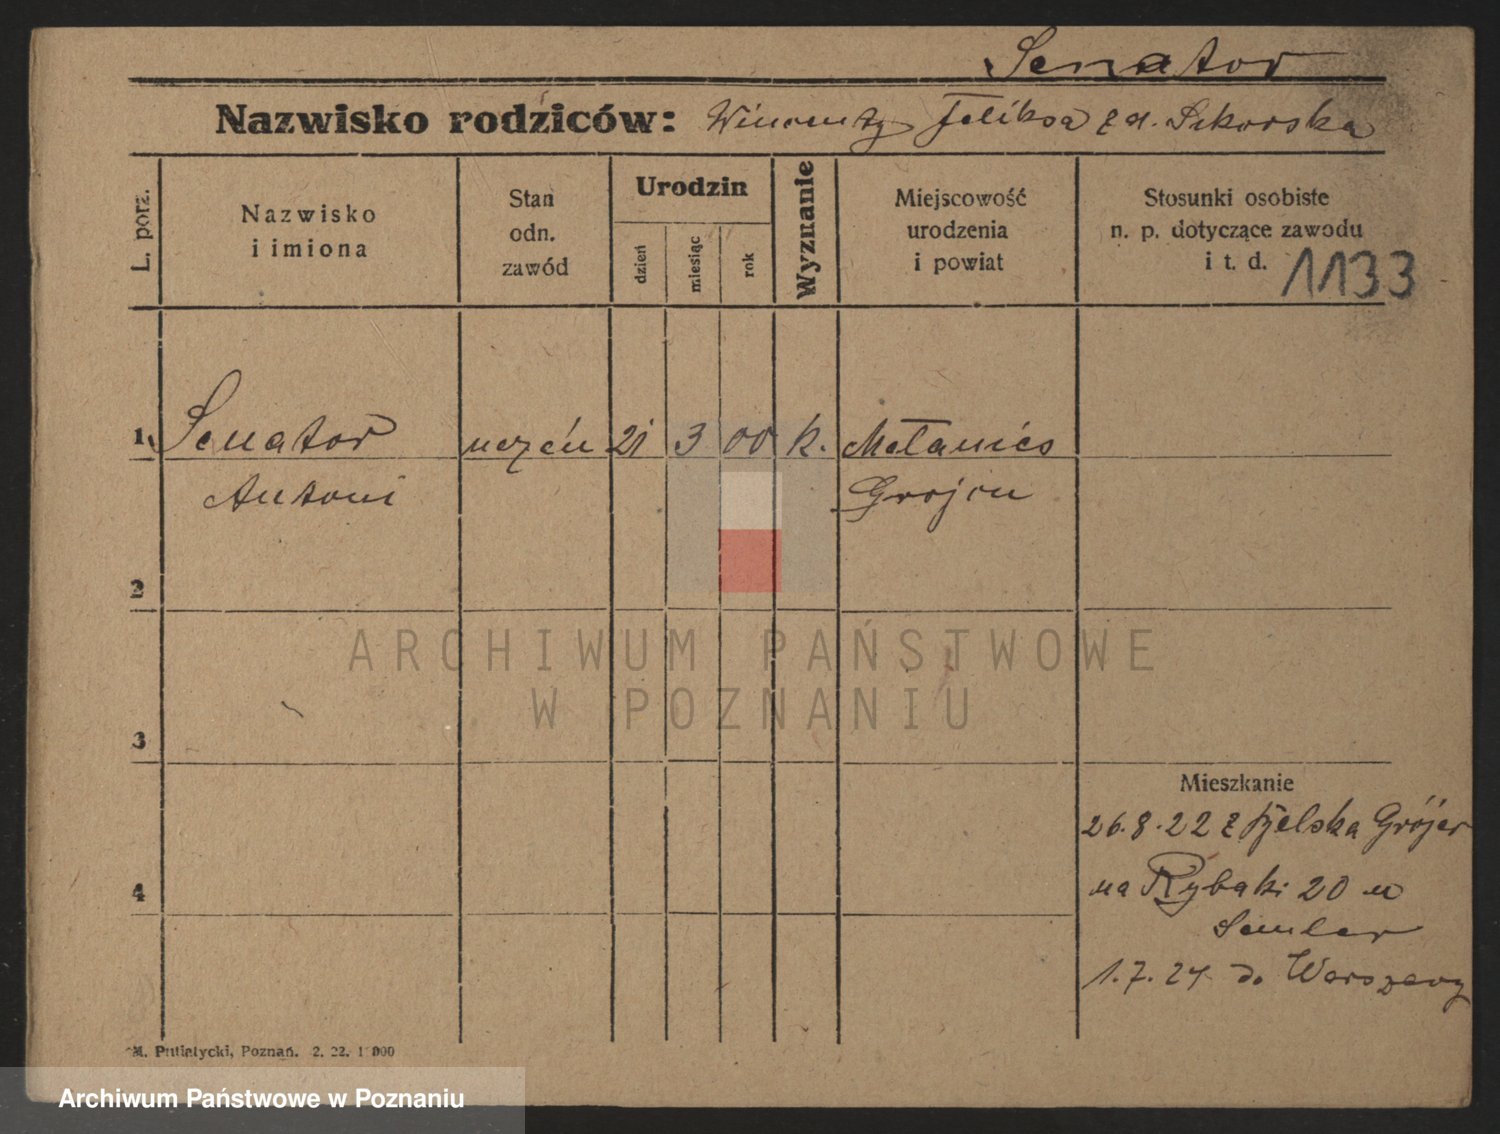 Senator
Nazwisko rodziców: Wincenty Feliksa z d. Sikorska
L. porz.
Nazwisko
i imiona
Stan
odn.
zawód
Urodzin
dzień
miesiąc
rok
Wyznanie
Miejscowość
urodzenia
i powiat
Stosunki osobiste
n. p. dotyczące zawodu
i t. d. 1133
1 Senator uczeń 21 3 00 k.
Antoni Grojcu
2
ARCHIWUM PAŃSTWOWE
W POZNANIU
3
Mieszkanie
26.8.22 z Grójec
4
na Rybaki 20 u
Semler
1.7.24 do Warszawy
M. Putiatycki, Poznań. 2. 22. 1000
Archiwum Państwowe w Poznaniu